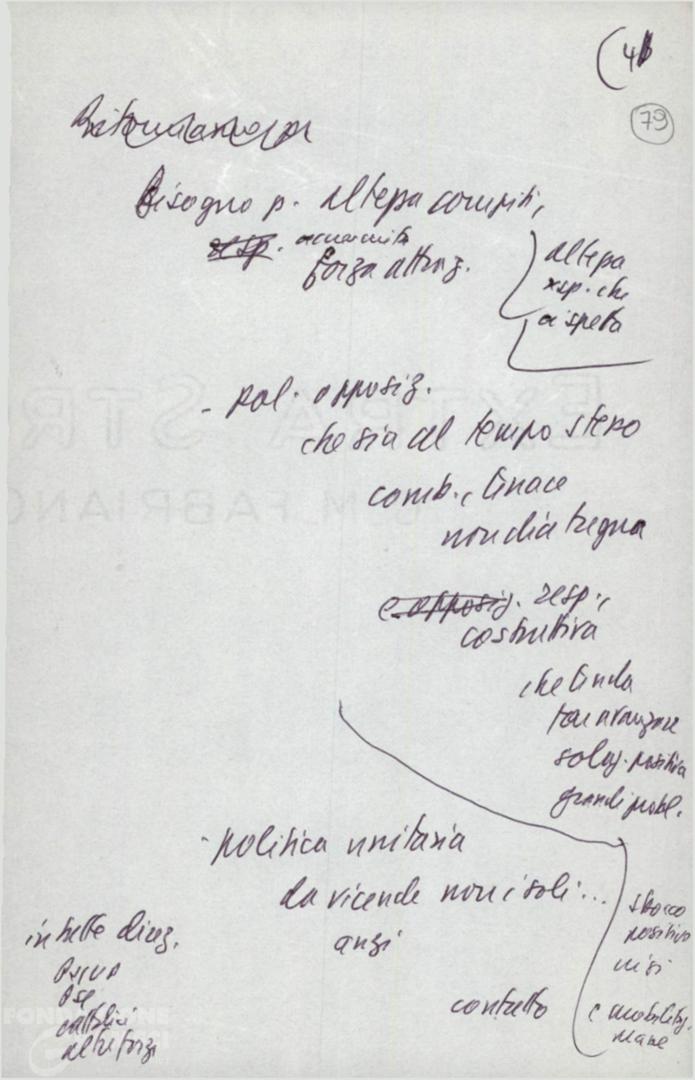 (4
79
Bisogno p. altezza compiti,
resp. accresciuta
forza attraz.
altezza
resp. che
ci spetta
- pol. opposiz.
che sia al tempo stesso
comb., tenace
non dia tregua
e opposiz. resp.,
costruttiva
che tenda
far avanzare
soluz. positiva
grandi probl.
- politica unitaria
da vicende non isoli...
anzi
contatto
sbocco
positivo
crisi
e mobilitaz.
in tutte direz.
PSIUP
PSI
cattolici
altre forze
EXTRA STR
C.M. FABRIANO
FONDAZIONE